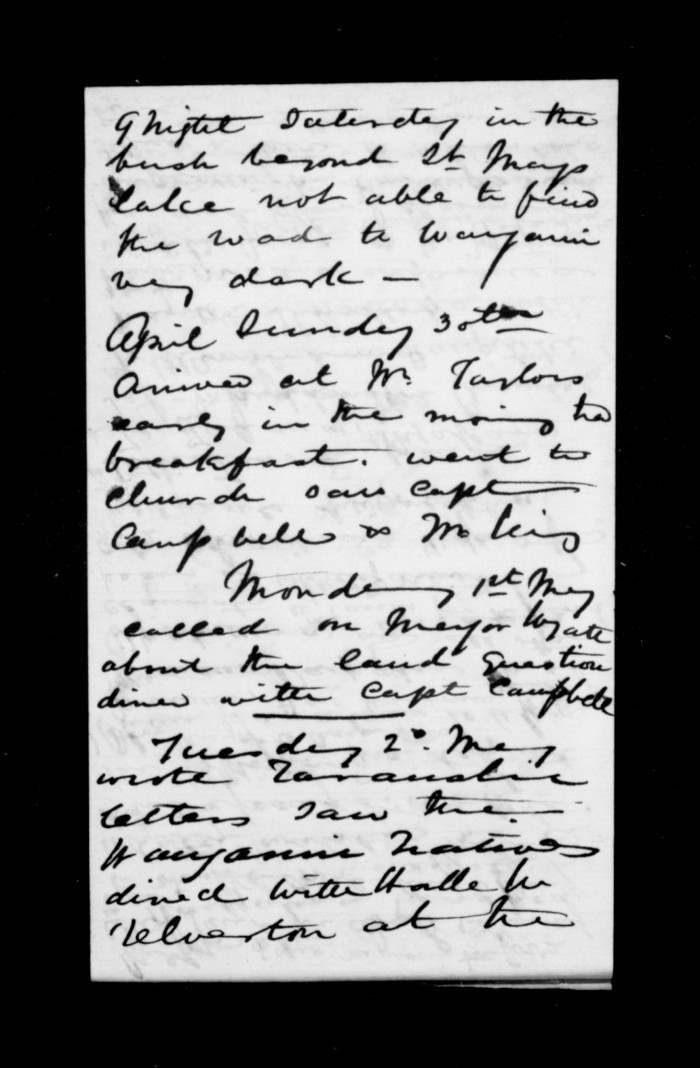 9 Night Saturday in the
bush beyond St Marys
lake not able to find
the road to Wanganui
very dark —
April Sunday 30th
Arrived at Mr. Taylors
early in the morning had
breakfast. went to
Church saw Capt
Campbell & Mr King
Monday 1st May
called on Major Wyatt
about the land question
dined with Capt Campbell
Tuesday 2d. May
wrote Taranaki
letters saw the
Wanganui Natives
dined with
Yelverton at the